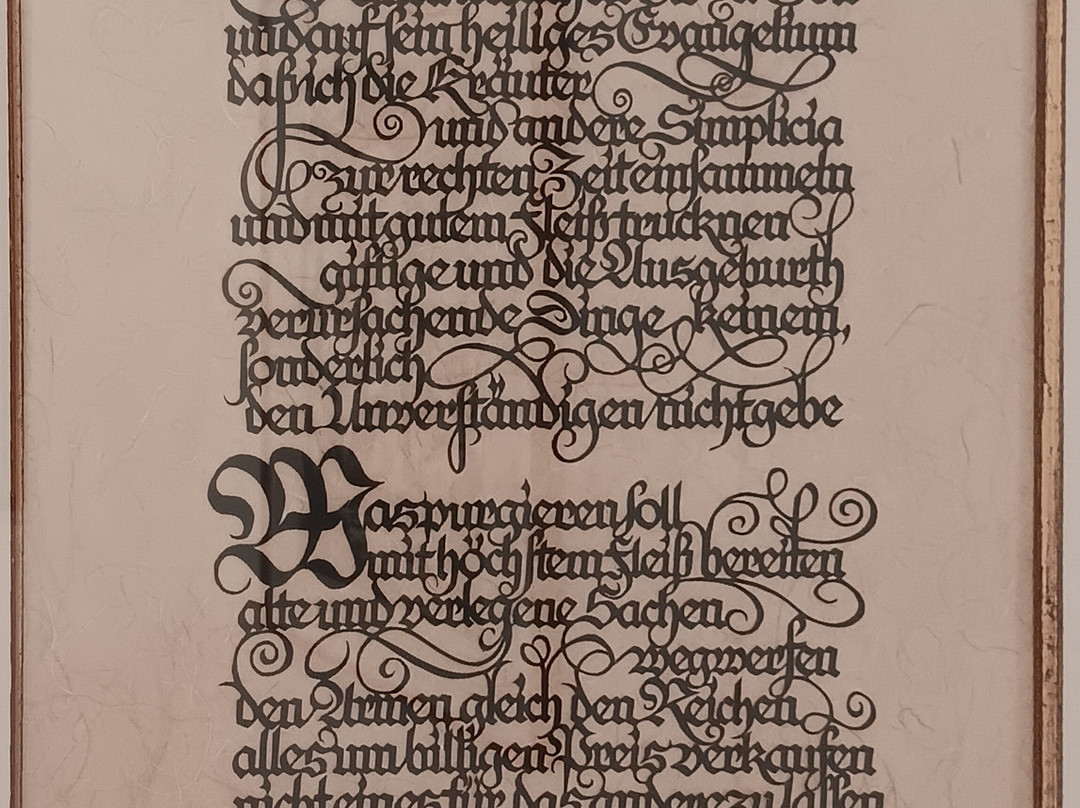 und auf sein heiliges Evangelium
daß ich die Kräuter
und andere Simplicia
zur rechten Zeit einsammeln
und mit gutem Fleiß trucknen
giftige und die Ausgeburth
verursachende Dinge keinem,
sonderlich
den Unverständigen nicht gebe
Was purgieren soll
mit höchstem Fleiß bereiten
alte und verlegene Sachen
wegwerfen
den Armen gleich den Reichen
alles um billigen Preis verkaufen
nicht eines für das andere zu lassen